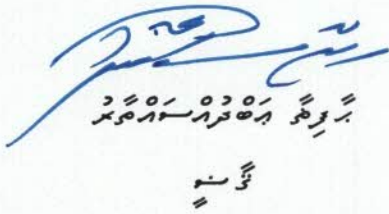 ޙާފިޡާ ޢަބްދުއްސައްތާރު
ޤާޟީ